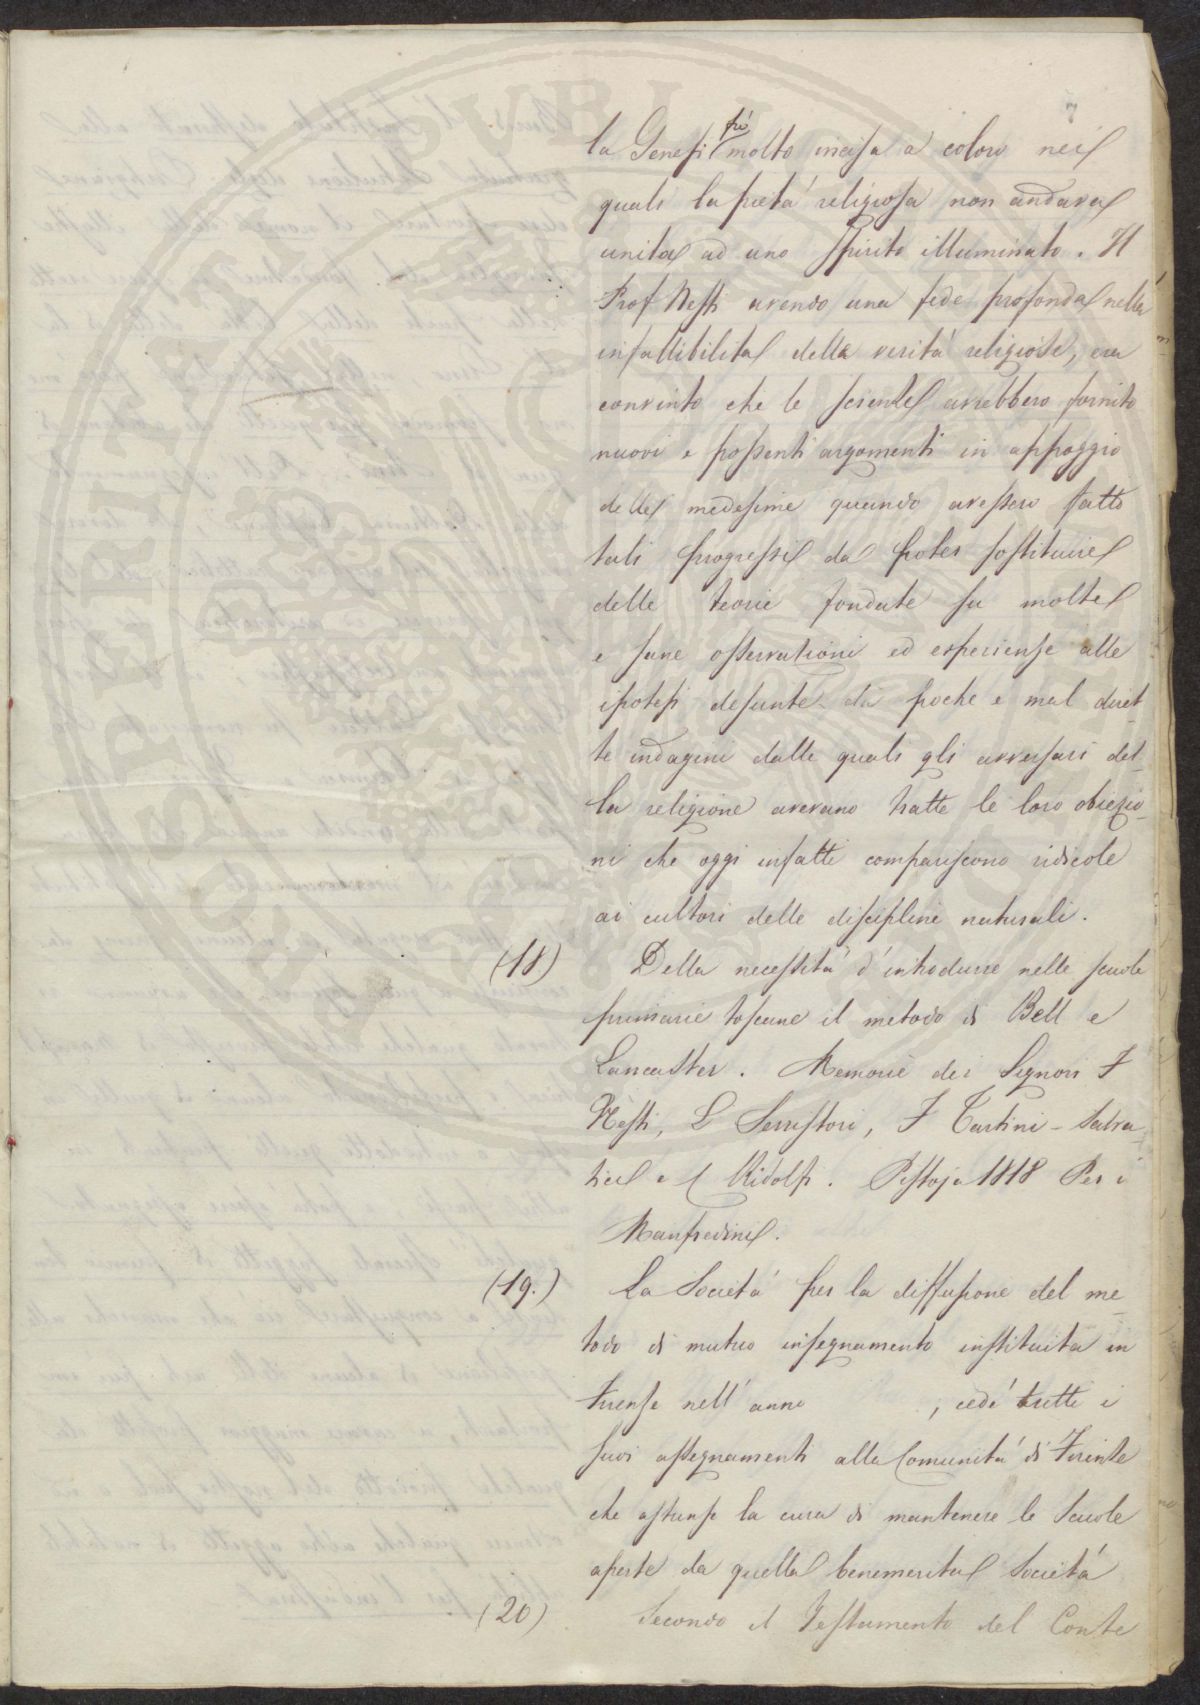 7
la Genesi fù molto invisa a coloro nei
quali la pietà religiosa non andava
unita ad uno spirito illuminato. Il
Prof Nesti avendo una fede profonda nella
infallibilita della verità religiose, era
convinto che le scienze avrebbero fornito
nuovi e possenti argomenti in appoggio
delle medesime quando avessero fatto
tali progressi da poter sostituire
delle teorie fondate su molte
e sane osservazioni ed esperienze alle
ipotesi desunte da poche e mal diret-
te indagini dalle quali gli avversari del-
la religione avevano tratte le loro obiezio-
ni che oggi infatti compariscono ridicole
ai cultori delle discipline naturali.
(18) Della necessità d'introdurre nelle scuole
primarie toscane il metodo di Bell e
Lancaster. Memorie dei Signori F
Nesti, L Serristori, F Tartini-Salva-
tici e C Ridolfi. Pistoja 1818 Per i
Manfredini.
(19.) La Società per la diffusione del me-
todo di mutuo insegnamento instituita in
Firenze nell'anno , cedé tutti i
suoi assegnamenti alla Comunità di Firenze
che assunse la cura di mantenere le Scuole
aperte da quella benemerita Società
(20) Secondo il Testamento del Conte